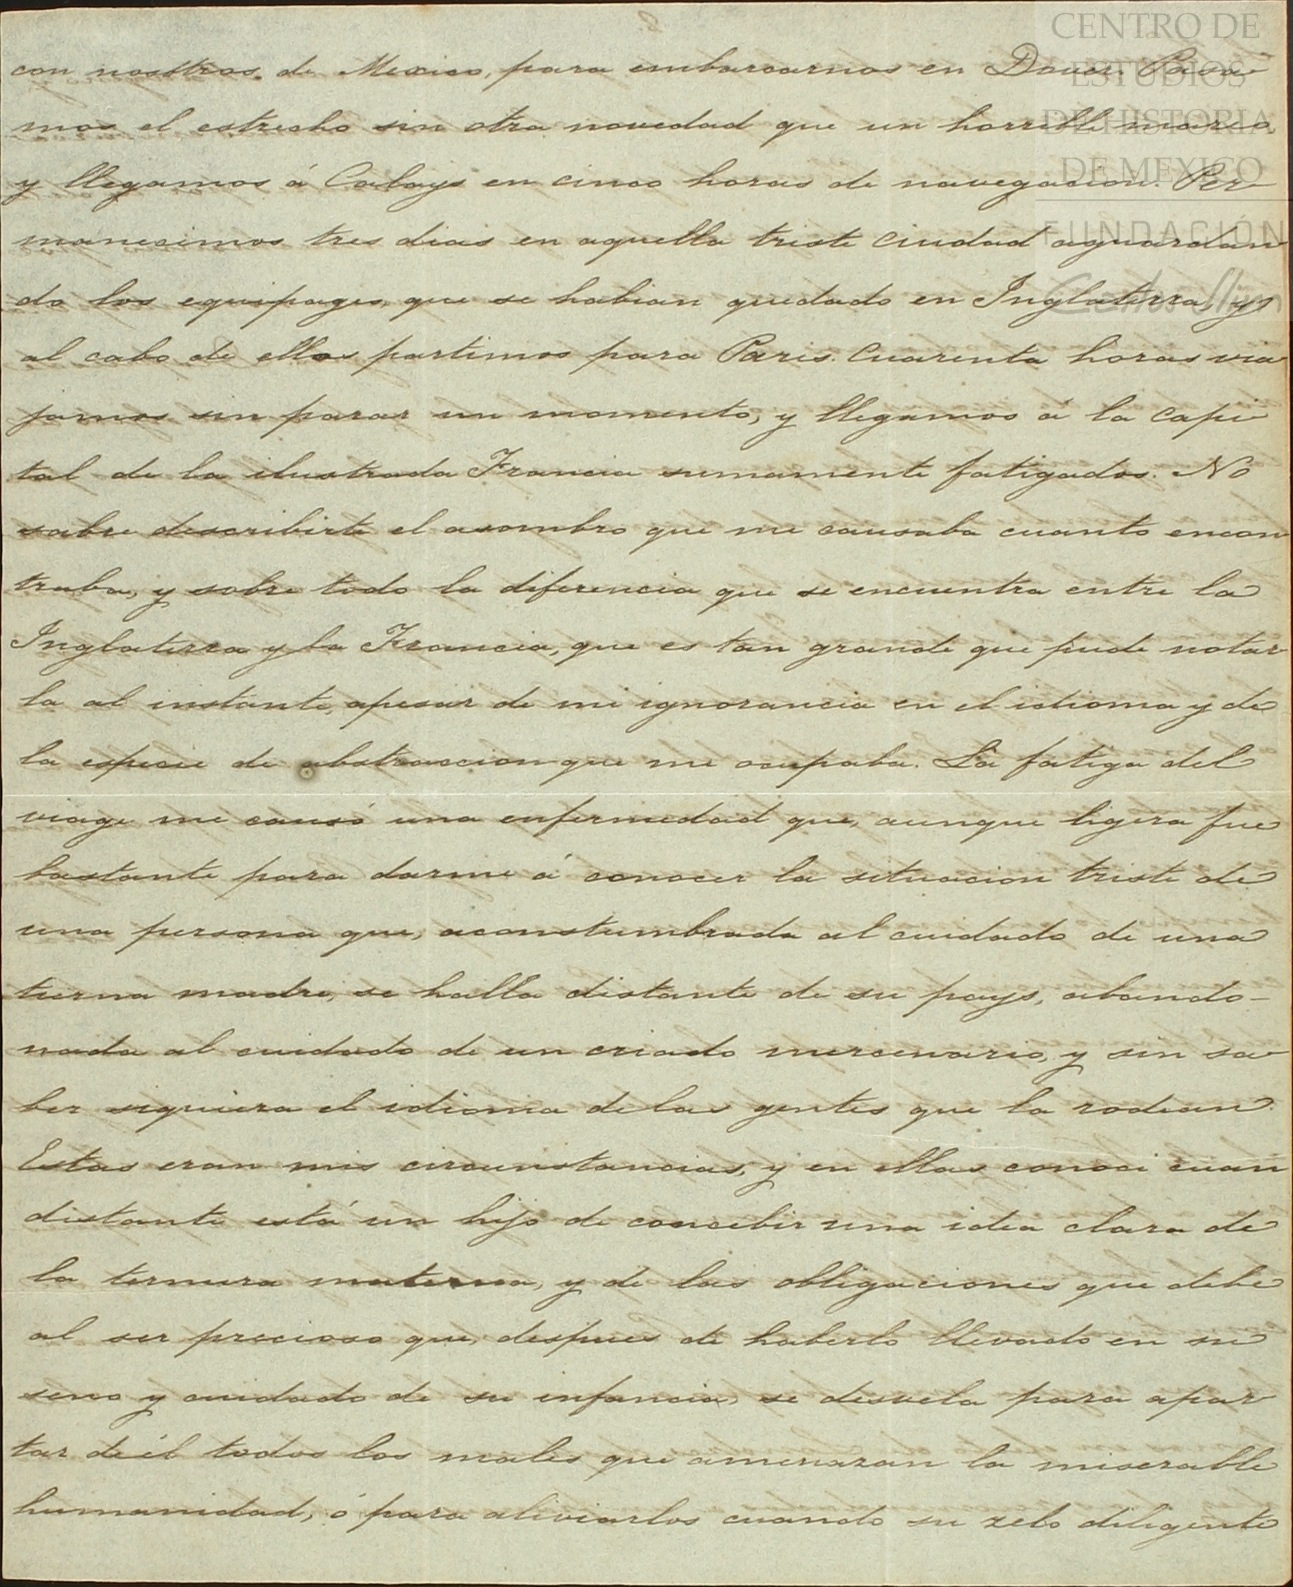 CENTRO DE
ESTUDIOS
DE HISTORIA
DE MEXICO
FUNDACIÓN
Carlos Slim
con nosotros de Mexico, para embarcarnos en Dover. Pasa-
mos el estrecho sin otra novedad que un horrible mareo,
y llegamos á Calays en cinco horas de navegacion. Per-
manecimos tres dias en aquella triste ciudad aguardan-
do los equipages, que se habian quedado en Inglaterra, y
al cabo de ellos partimos para Paris. Cuarenta horas via-
jamos sin parar un momento, y llegamos á la capi-
tal de la ilustrada Francia sumamente fatigados. No
sabre describirte el asombro que me causaba cuanto encon-
traba, y sobre todo la diferencia que se encuentra entre la
Inglaterra y la Francia, que es tan grande que pude notar-
la al instante, apesar de mi ignorancia en el idioma y de
la especie de abstraccion que me ocupaba. La fatiga del
viage me causó una enfermedad que, aunque ligera fue
bastante para darme á conocer la situacion triste de
una persona que, aconstumbrada al cuidado de una
tierna madre, se halla distante de su pays, abando-
nada al cuidado de un criado mercenario, y sin sa-
ber siquiera el idioma de las gentes que la rodean.
Estas eran mis circunstancias, y en ellas conoci cuan
distante está un hijo de concebir una idea clara de
la ternura materna, y de las obligaciones que debe
al ser precioso que, despues de haberlo llevado en su
seno y cuidado de su infancia, se desvela para apar-
tar de él todos los males que amenazan la miserable
humanidad, ó para aliviarlos cuando su zelo diligente